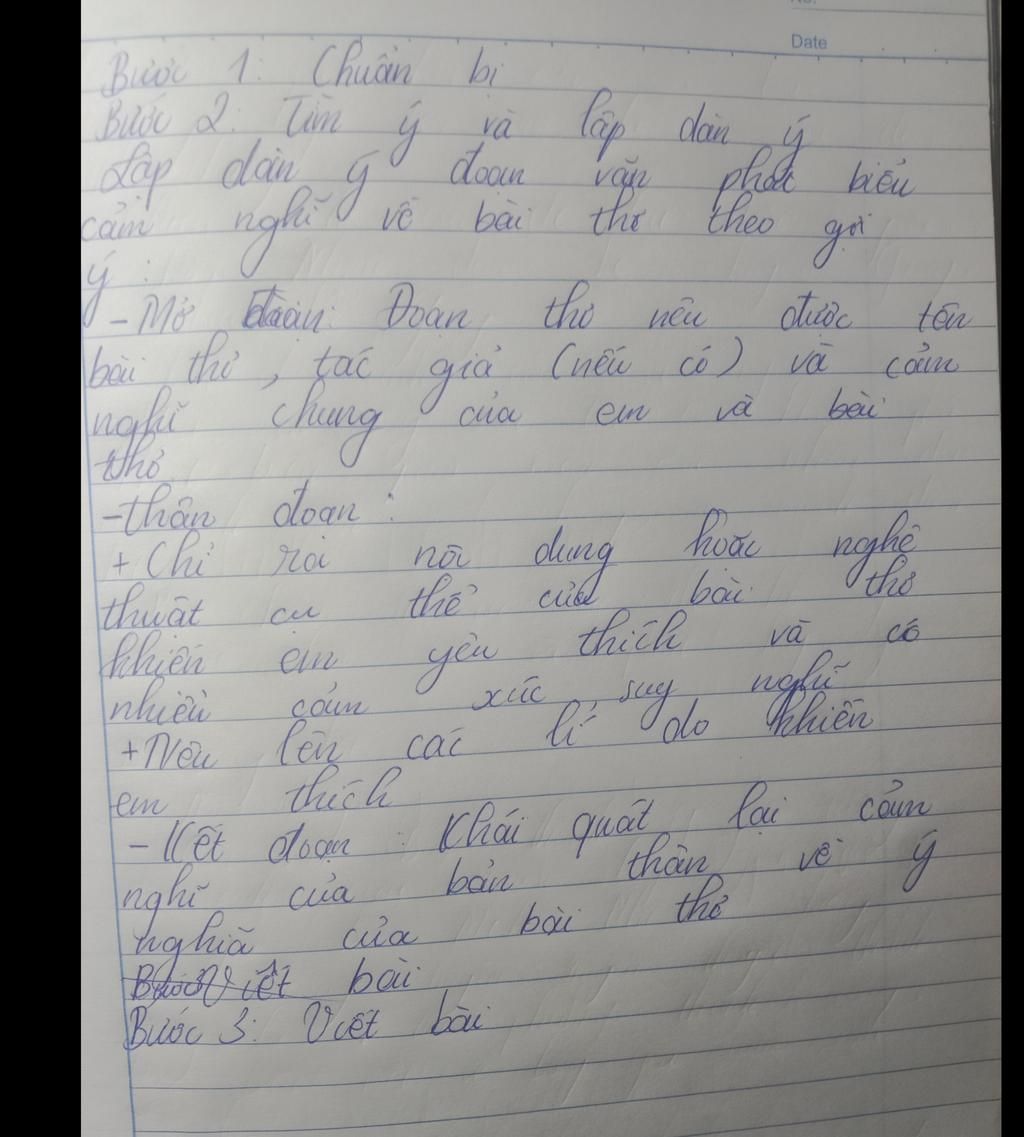 No.
Date
Bước 1: Chuẩn bị
Bước 2: Tìm ý và lập dàn ý
Lập dàn ý đoạn văn phát biểu
cảm nghĩ về bài thơ theo gợi
ý :
- Mở đoạn: Đoạn thơ nêu được tên
bài thơ, tác giả (nếu có) và cảm
nghĩ chung của em và bài
thơ
- thân đoạn :
+ Chỉ rõ nội dung hoặc nghệ
thuật cụ thể của bài thơ
khiến em yêu thích và có
nhiều cảm xúc, suy nghĩ
+ Nêu lên các lí do khiến
em thích
- Kết đoạn : Khái quát lại cảm
nghĩ của bản thân về ý
nghĩa của bài thơ
Bước Viết bài
Bước 3: Viết bài